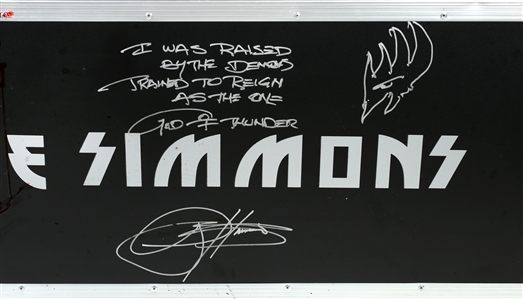 I WAS RAISED
BY THE DEMONS
TRAINED TO REIGN
AS THE ONE
GOD OF THUNDER
E SIMMONS